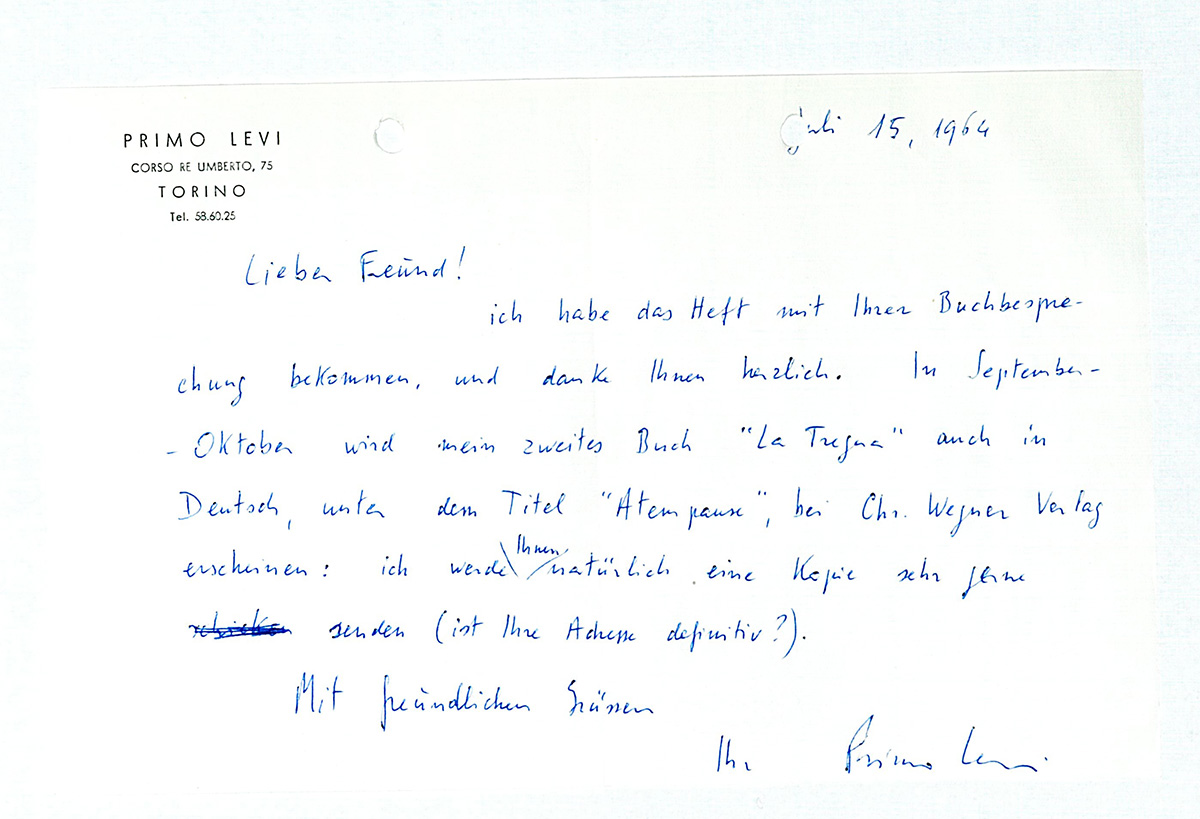 PRIMO LEVI
CORSO RE UMBERTO, 75
TORINO
Tel. 58.60.25
Juli 15, 1964
Lieber Freund!
ich habe das Heft mit Ihrer Buchbespre-
chung bekommen, und danke Ihnen herzlich. In September-
- Oktober wird mein zweites Buch "La Tregua" auch in
Deutsch, unter dem Titel "Atempause", bei Chr. Wegner Verlag
erscheinen: ich werde Ihnen natürlich eine Kopie sehr gerne
schicken senden (ist Ihre Adresse definitiv?).
Mit freundlichen Grüssen
Ihr Primo Levi